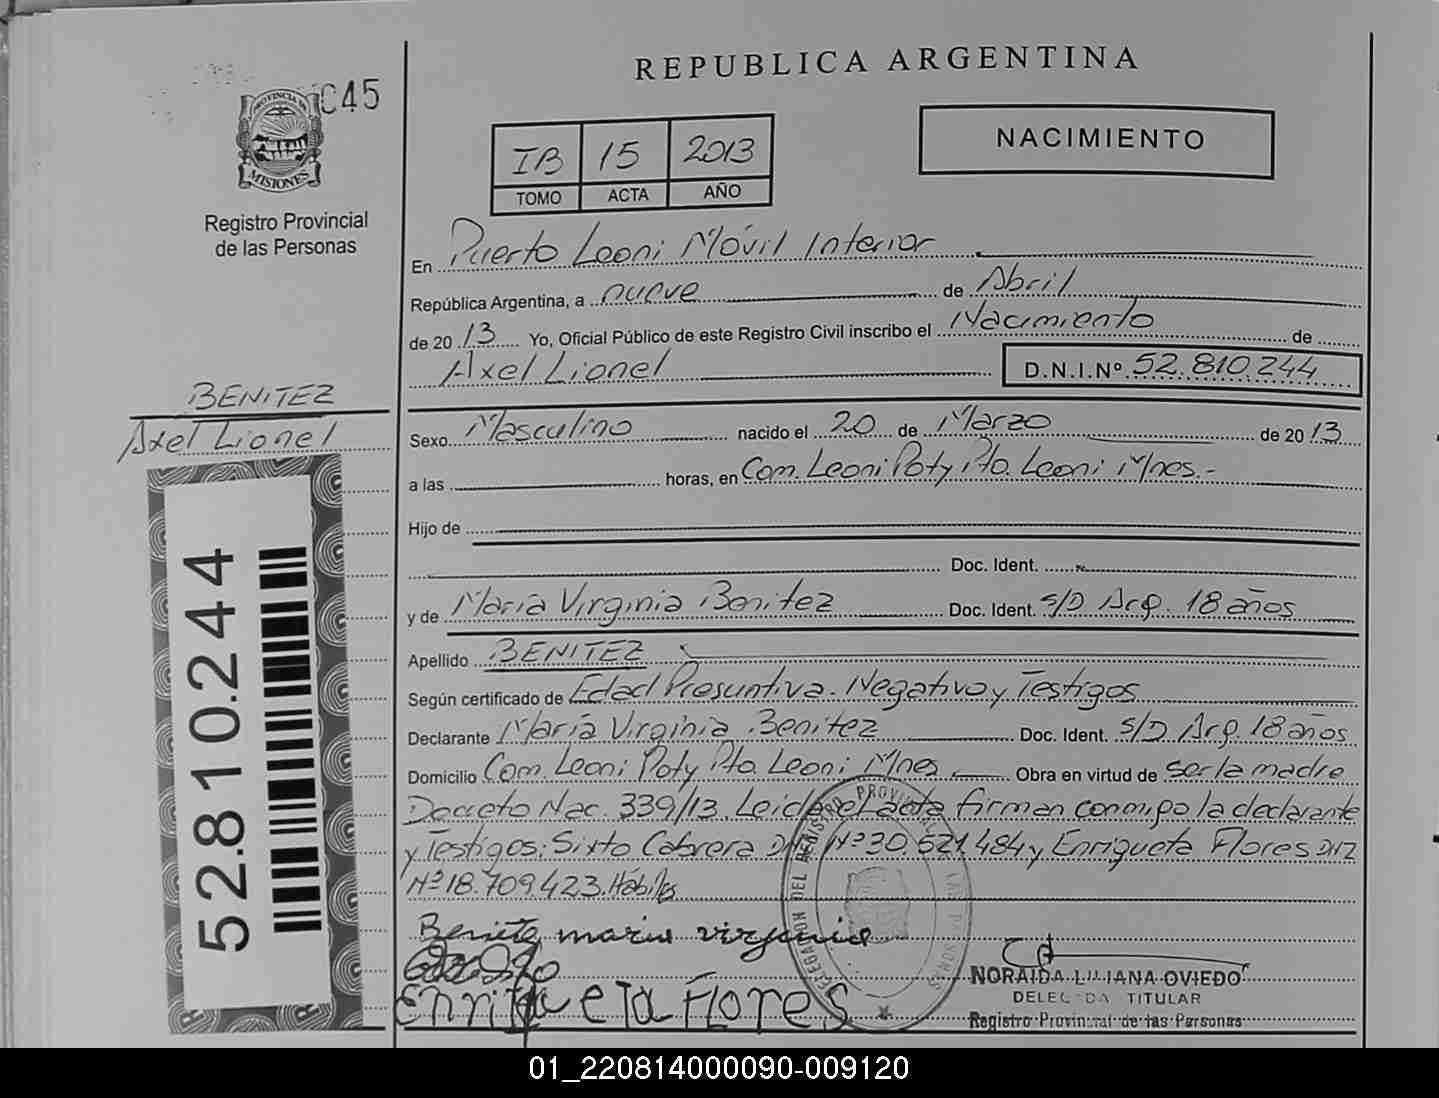 C45
PROVINCIA DE
MISIONES
Registro Provincial
de las Personas
REPUBLICA ARGENTINA
IB 15 2013
TOMO ACTA AÑO
NACIMIENTO
En Puerto Leoni Móvil Interior
República Argentina, a nueve de Abril
de 2013 Yo, Oficial Público de este Registro Civil inscribo el Nacimiento de
Axel Lionel D.N.I.Nº 52.810.244
BENITEZ
Axel Lionel
52.810.244
Sexo Masculino nacido el 20 de Marzo de 2013
a las horas, en Com. Leoni Poty Pto. Leoni Mnes.-
Hijo de
Doc. Ident.
y de María Virginia Benitez Doc. Ident. s/D Arg. 18 años
Apellido BENITEZ
Según certificado de Edad Presuntiva. Negativo y Testigos
Declarante María Virginia Benitez Doc. Ident. s/D Arg. 18 años
Domicilio Com. Leoni Poty Pto. Leoni Mnes Obra en virtud de ser la madre
Decreto Nac. 339/13. Leida el acta firman conmigo la declarante
y Testigos: Sixto Cabrera DNI Nº 30.521.484 y Enriqueta Flores DNI
Nº 18.709.423. Hábiles
Benitez maria virginia
Enriqueta Flores
DELEGACION DEL REGISTRO PROVINCIAL DE LAS PERSONAS
NORAIDA LILIANA OVIEDO
DELEGADA TITULAR
Registro Provincial de las Personas
01_220814000090-009120